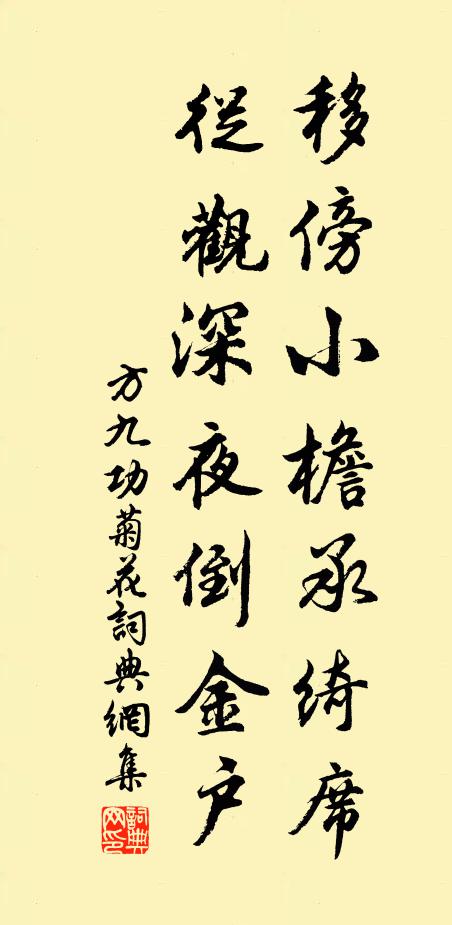 移傍小檐承绮席
從觀深夜倒金户
方九功菊花詞典網集
詞典
网印